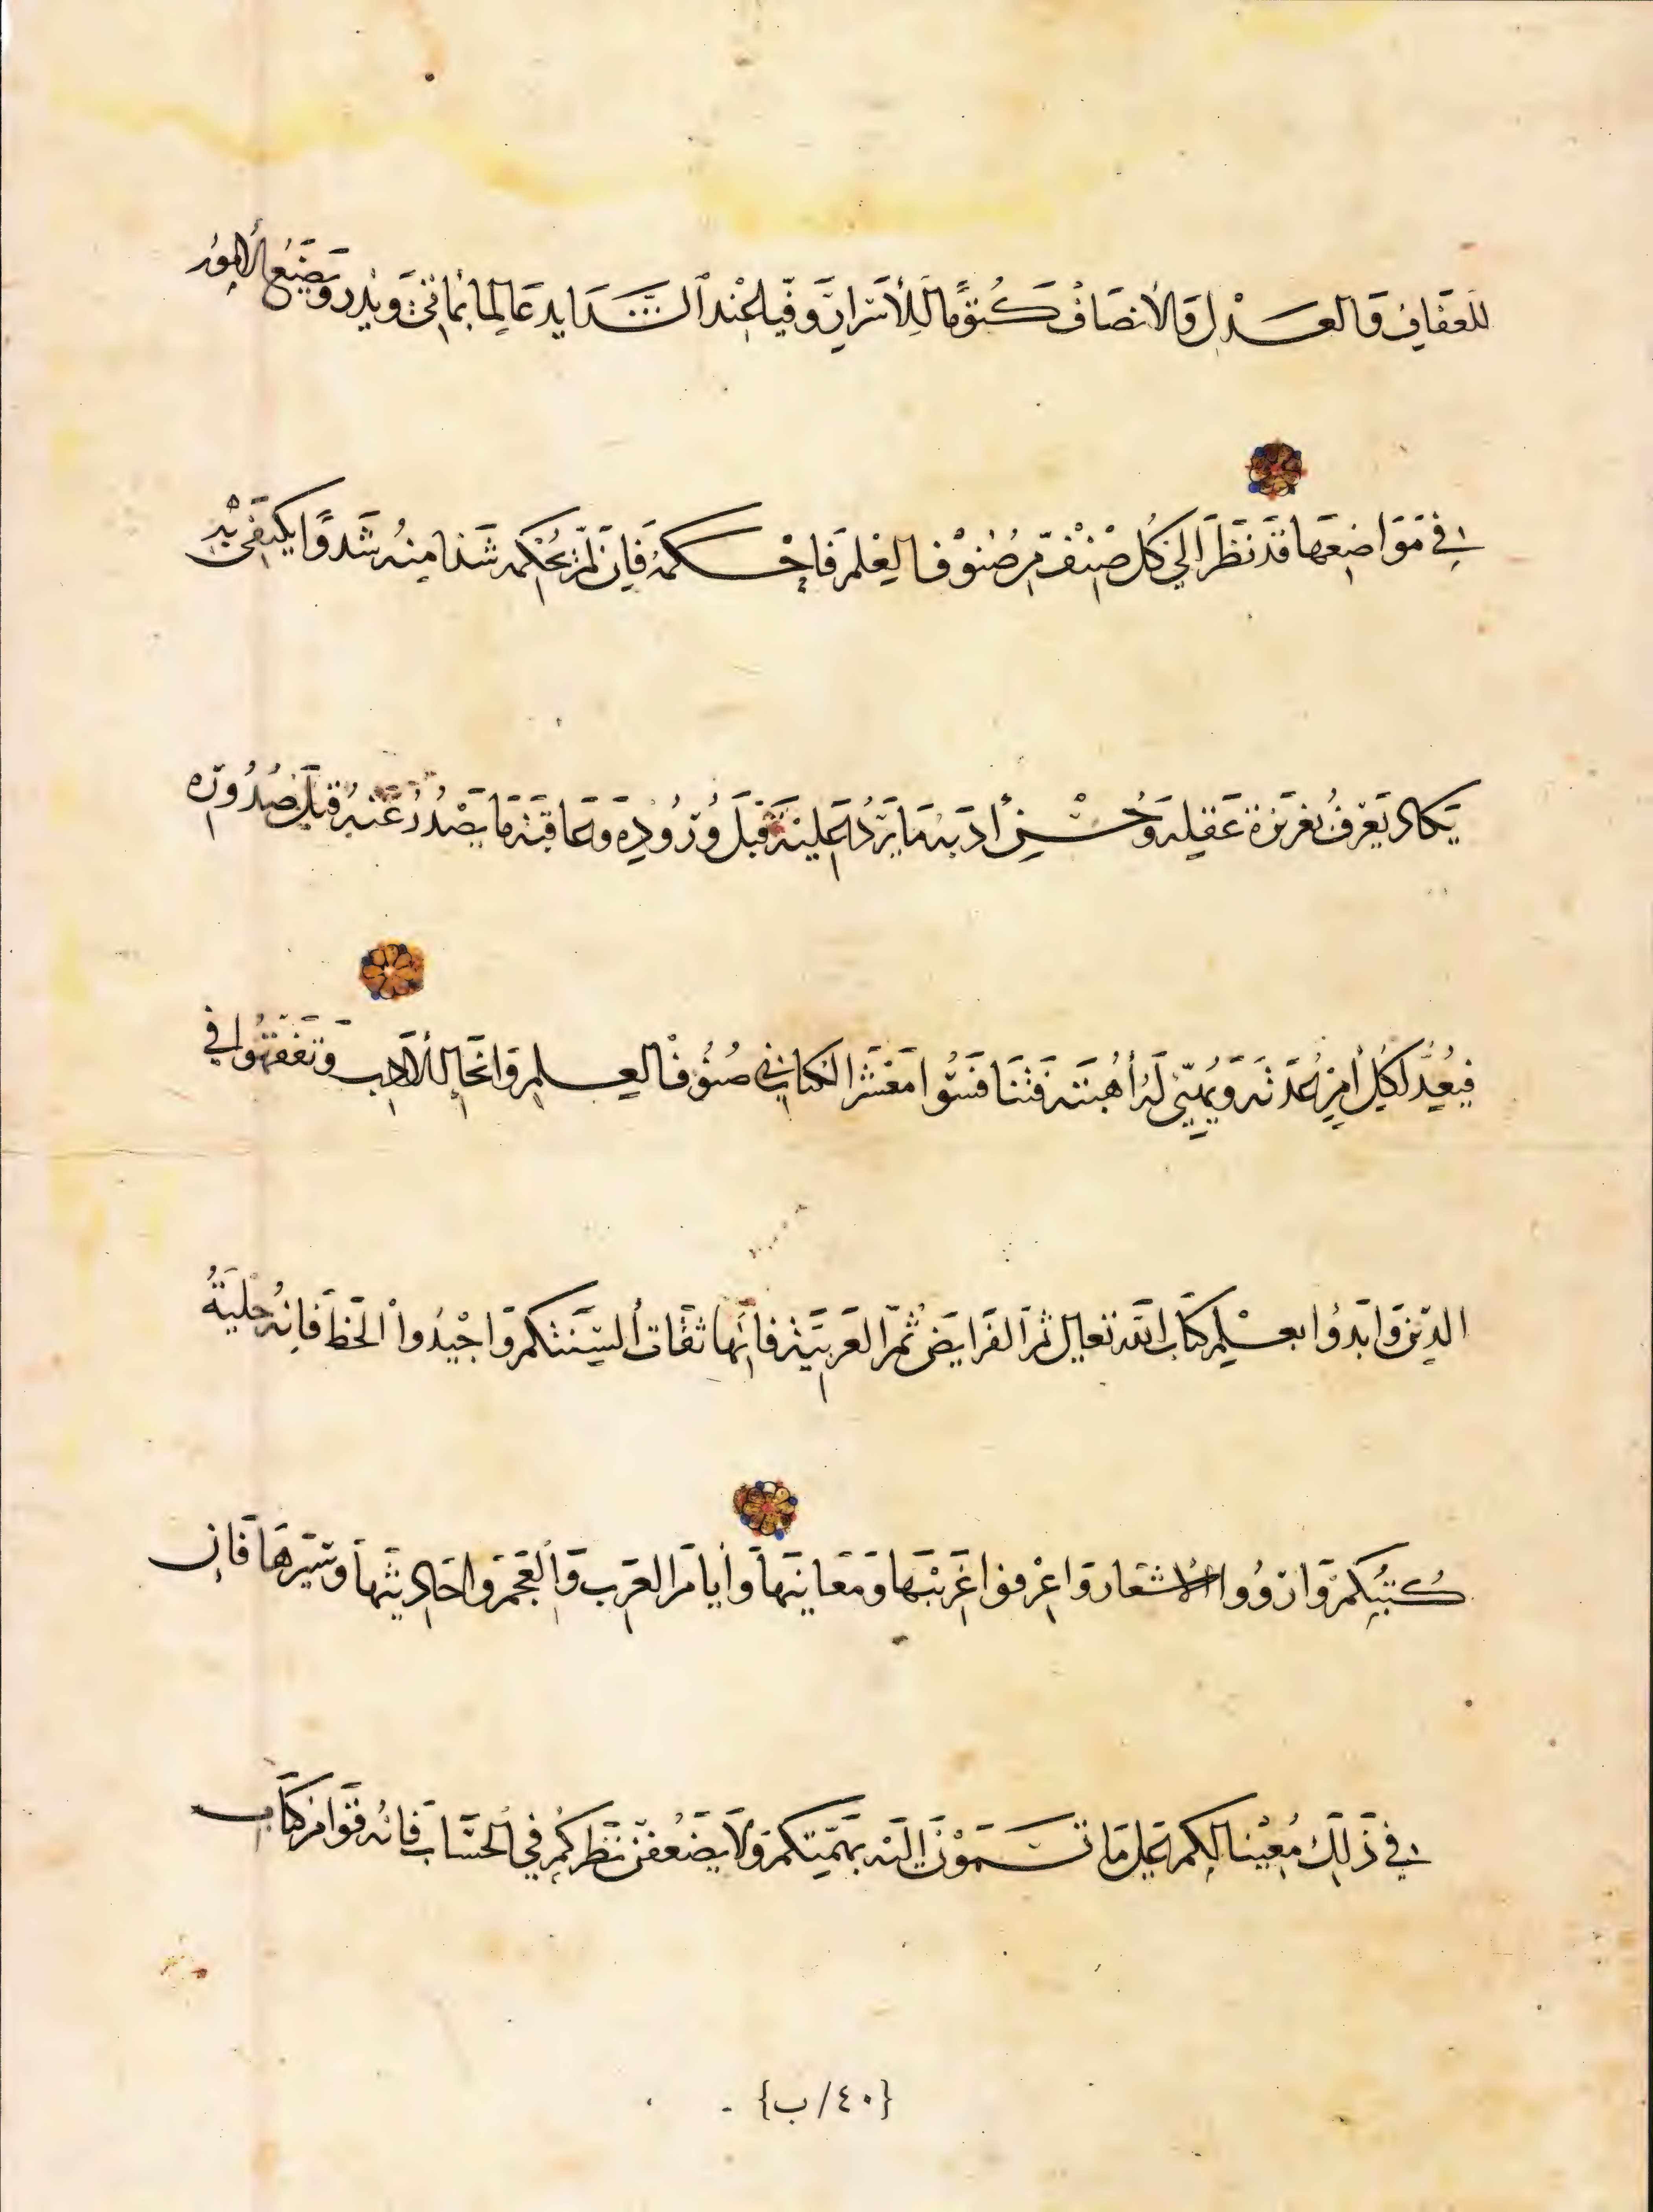 للعَفَافِ وَالعَدْلِ وَالأنصَافِ كَتُومًا لِلأسْرارِ وَفِيًا عِنْدَ الشَّدَايدِ عَالِمًا بمَا يَأتى وَيذر وَيَضَعُ الأمُورَ
فِي مَوَاضِعَهَا قَدْ نَظَرَ الى كُل صِنْفٍ مِن صُنُوْفِ العِلْمِ فَاحْكَمَهُ فَإن لَمْ يُحْكِمْه شَدَا مِنهُ شَدوًا يَكتَفِى بِهِ
يَكَاد يَعْرِفُ بغَرِيزةِ عَقلِهِ وَحُسْنِ أدَبِهِ مَا يَرِدُ عَلَيْهِ قَبْلَ وُرُودِهِ وَعَاقِبَةَ مَا يَصْدُرُ عَنهُ قَبْلَ صُدُورِه
فيُعِدُّ لكُلِّ أمْرٍ عُدَّتَه وَيُهَيّئ لَهُ أُهْبَتَه فَتَنَافَسُوا مَعْشَرَ الكتابِ في صُنُوفِ العِلمِ وَانحَاءِ الأدَبِ وَتَفَقَّهُوا في
الدِّيْنِ وَابْدؤُا بعِلْمِ كتَابِ الله تعَالى ثمَّ الفَرَايَض ثُمَّ العَرَبيَّةِ فَانّهَا ثقَاف ألسِنَتكُمْ وَاجْيدُوا الخَطّ فَانهُ حِليَةُ
كُتُبِكُمْ وَارْوُوا الأشعَار وَاعْرفوا غَرِيْبَهَا وَمَعَانِيَهَا وَأيَّامَ العَرَب وَالعَجَمِ وَاحَادِيثَهَا وَسِيَرهَا فَان
فِي ذَلِكَ مُعِيْنًا لكم عَلى مَا تَسْمَوْنَ إليْهِ بهِمَمِكُمْ وَلَا يَضْعُفَنّ نَظَركُمْ فِي الحسَاب فَانهُ قوَامُ كتَاب
{٤٠/ ب}